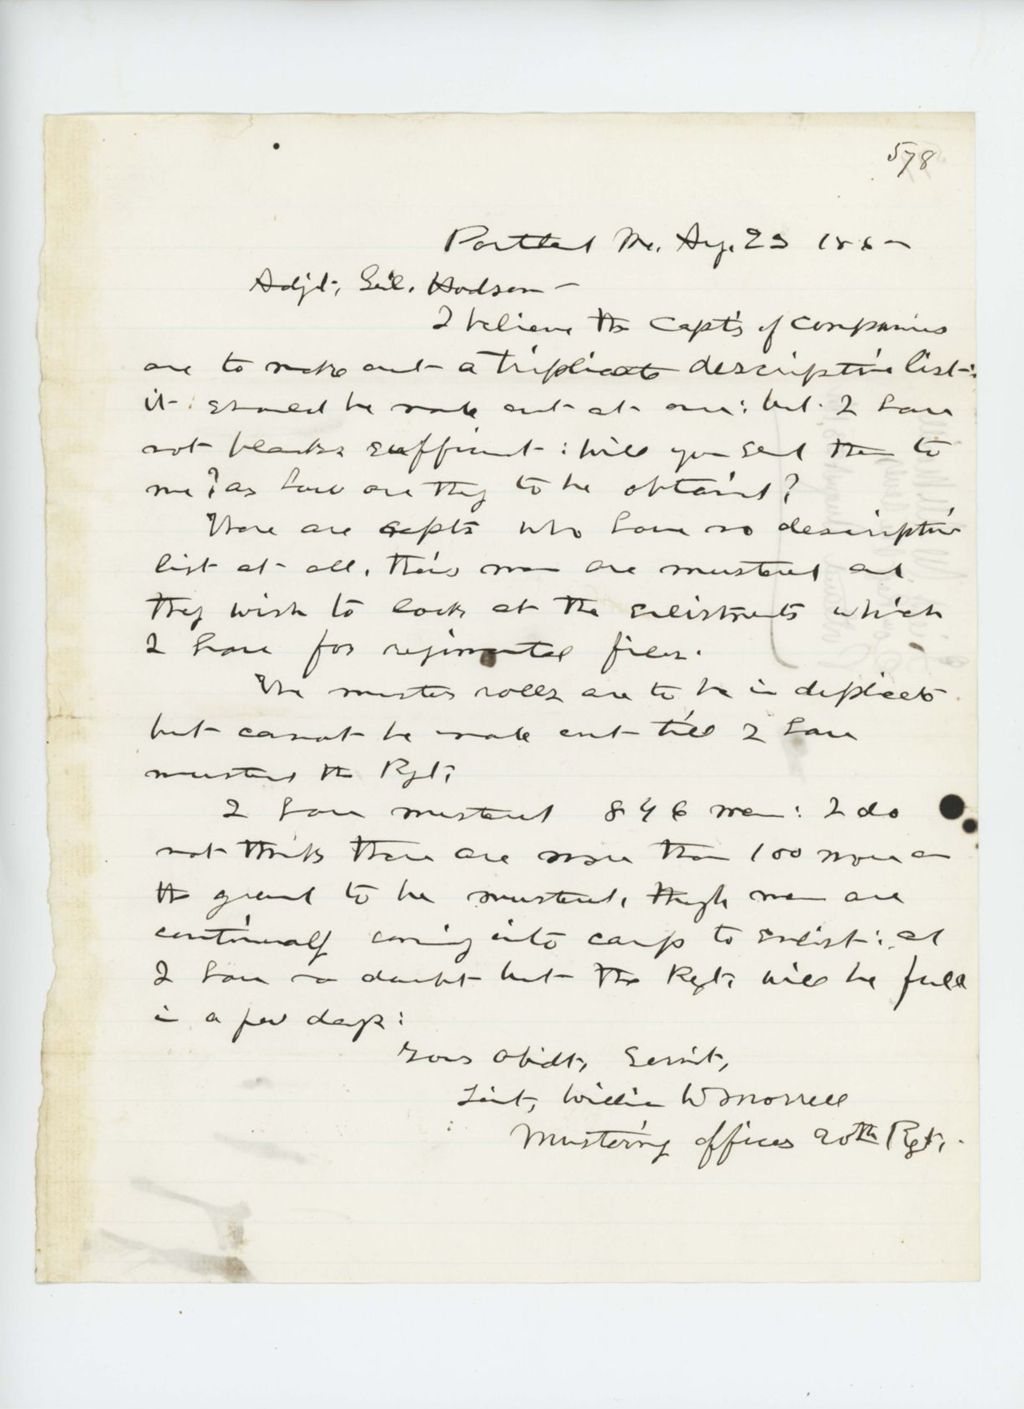 578
Portland Me. Aug. 23 186-
Adjt. Genl. Hodsdon -
I believe the Capts of companies
are to make out a triplicate descriptive list:
it should be made out at once: but I have
not blanks sufficient: Will you send them to
me? as how are they to be obtained?
There are capts who have no descriptive
list at all. Their men are mustered and
they wish to look at the enlistments which
I have for regimental files.
The muster rolls are to be in duplicate
but cannot be made out till I have
mustered the Regt.
I have mustered 846 men: I do
not think there are more than 100 more on
the ground to be mustered, though men are
continually coming into camp to enlist: and
I have no doubt but the Regt. will be full
in a few days:
Your Obidt, Servt,
Lieut, William W Morrell
Mustering officer 20th Regt.